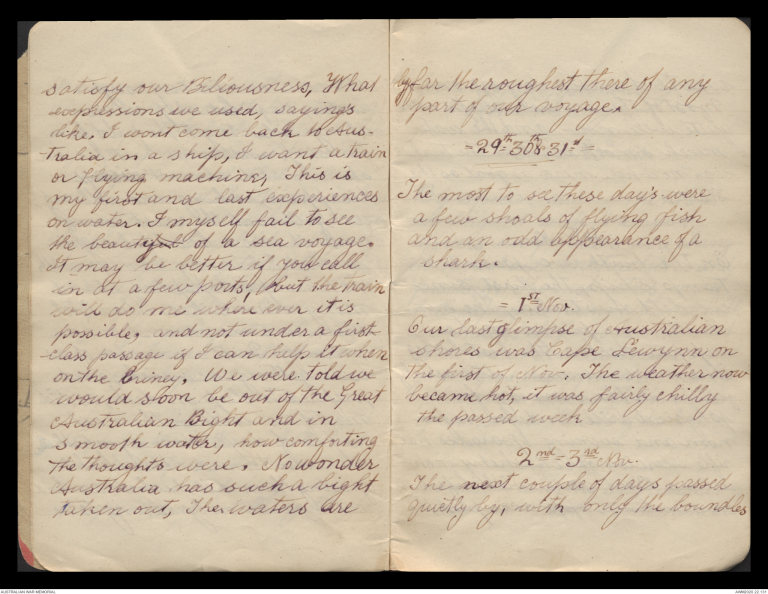 satisfy our Biliousness, What
expressions we used, sayings
like. I wont come back to Aus-
tralia in a ship, I want a train
or flying machine; This is
my first and last experiences
on water. I myself fail to see
the beautiful of a sea voyage.
It may be better if you call
in at a few ports, but the train
will do me where ever it is
possible, and not under a first
class passage if I can help it when
on the briney. We were told we
would soon be out of the Great
Australian Bight and in
smooth water, how comforting
the thoughts were. No wonder
Australia has such a bight
taken out, The waters are
by far the roughest there of any
part of our voyage.
= 29th 30th & 31st =
The most to see these day's were
a few shoals of flying fish
and an odd appearance of a
shark.
= 1st Nov.
Our last glimpse of Australian
shores was Cape Lewynn on
the first of Nov. The weather now
became hot, it was fairly chilly
the passed week
2nd = 3rd Nov.
The next couple of days passed
quietly by, with only the boundles
AUSTRALIAN WAR MEMORIAL